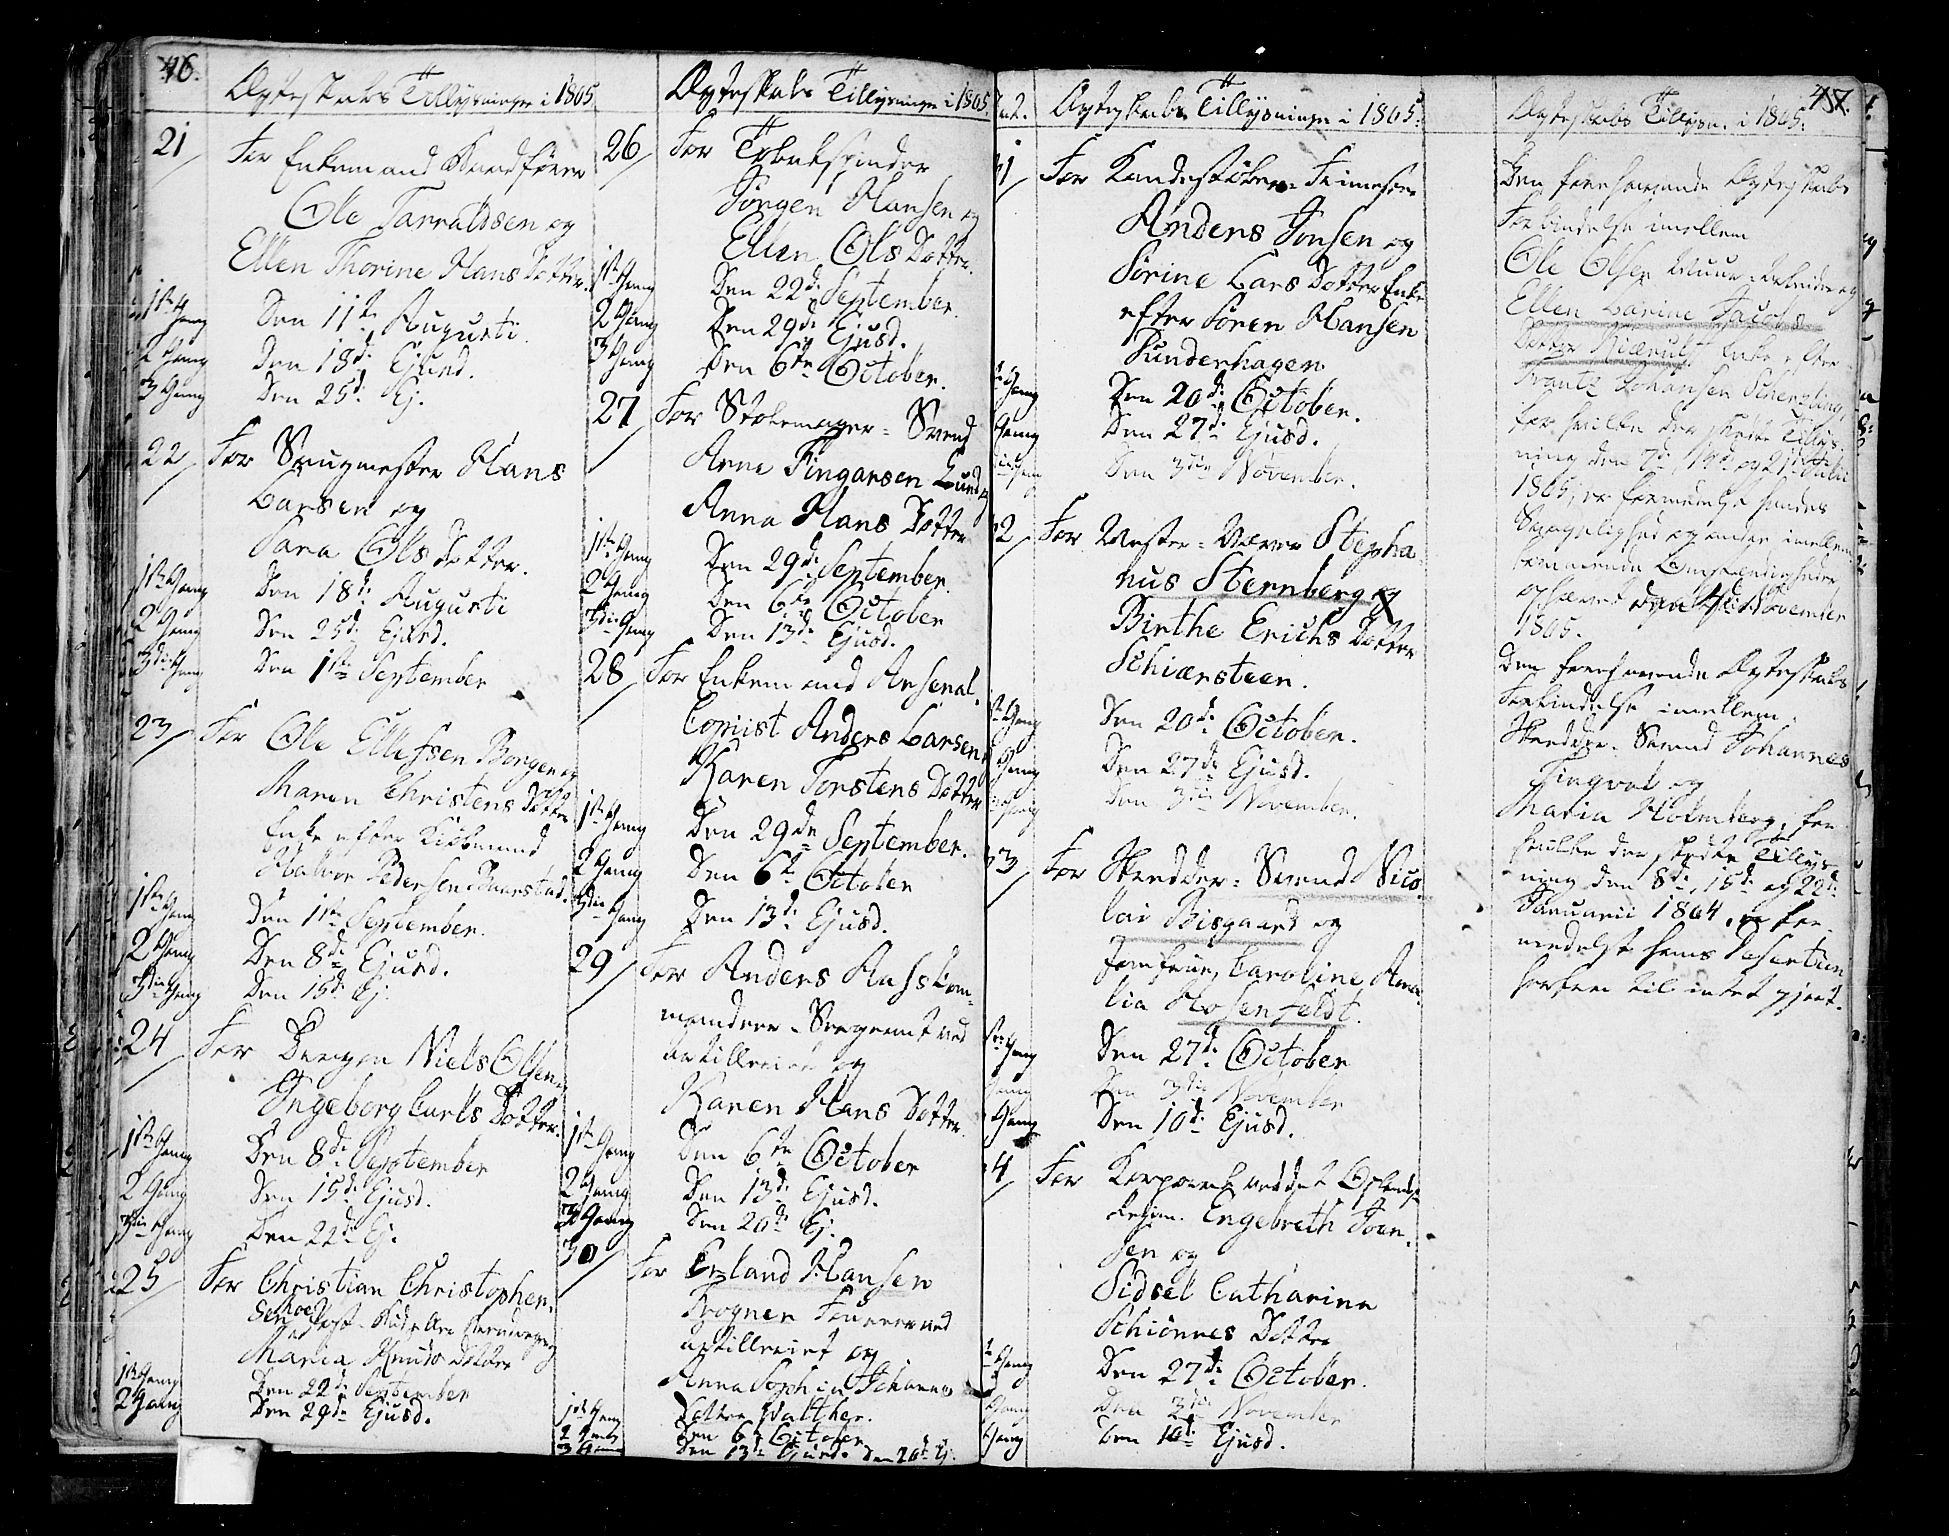 46.
Ægteskabs Tillysninger i 1805
21
For Enkemand
Ole Tarraldsen og
Ellen Thorine Hans Dotter.
1ste Gang Den 11te Augusti.
2 Gang Den 18de Ejusd.
3 Gang Den 25de Ej.
22
For Saugmester Hans
Larsen og
Sara Ols Dotter.
1ste Gang Den 18de Augusti
2 Gang Den 25de Ejusd.
3die Gang Den 1ste September
23
For Ole Ellefsen Borgen og
Maren Christens Dotter
Enke efter Kiøbmand
Halvor Pedersen
1ste Gang Den 1ste September.
2 Gang Den 8de Ejusd.
3die Gang Den 15de Ej.
24
For Niels Olsen
Ingeborg Carls Dotter.
1ste Gang Den 8de September
2 Gang Den 15de Ejusd.
3die Gang Den 22de Ej.
25
For Christian Christopher-
sen
Maria Knuds Dotter
1ste Gang Den 22de September
2 Gang Den 29de Ejusd.
Ægteskabs Tillysninger i 1805.
26
For Tobakspinder
Jørgen Hansen og
Ellen Ols Dotter.
1ste Gang Den 22de September.
2 Gang Den 29de Ejusd.
3 Gang Den 6te October.
27
For Stolemager-Svend
Arne Fingarsen Lund og
Anna Hans Dotter
1ste Gang Den 29de September.
2 Gang Den 6te October
3die Gang Den 13de Ejusd.
28
For Enkemand Arsenal-
Copiist Anders Larsen
Karen Torstens Dotter
1ste Gang Den 29de September.
2 Gang Den 6te October
3die Gang Den 13de Ejusd.
29
For Anders Aass Com-
mandeer-Sergeant ved
Artilleriet og
Karen Hans Dotter.
1ste Gang Den 6te October
2 Gang Den 13de Ejusd.
3 Gang Den 20de Ej.
30
For Erland Hansen
Frogner ved
Artilleriet og
Anna Sophia Johannes
Dotter Walther.
1ste Gang Den 6te October
2 Gang Den 13de Ejusd. Den 20de Ej.
3 Gang
Ægteskabs Tillysninger i 1805.
1
For Kandestøber
Anders Jonsen og
Sørine Lars Dotter Enke
efter Søren Hansen
Sunderhagen
Gang Den 20de October.
Gang Den 27de Ejusd.
Den 3die November.
2
For Mester-Væver Stepha-
nus Sternberg og
Birthe Erichs Dotter
Schiærsteen.
Gang Den 20de October.
Gang Den 27de Ejusd.
Den 3die November.
3
For Skrædder-Svend Nico-
lai Bisgaard og
Jomfrue Caroline Ama-
lia Hosenfeldt.
Gang Den 27de October
Gang Den 3die November
Gang Den 10de Ejusd.
4
For Corporal ved det
Regim. Engebreth Joen-
sen og
Sidsel Catharina
Schiønnes Dotter
Gang Den 27de October.
Gang Den 3die November
Gang Den 10de Ejusd.
47.
Ægteskabs Tillysn. i 1805.
Den forehavende Ægteskabs
Forbindelse imellem
Ole Olsen Muur-Arbeider og
Ellen Larine Jacobs
Dotter Enke efter
Frantz Johansen
for hvilke der skedte Tillys-
ning den 7de 14de og 21de Julii
1805, er formedelst hendes
Svagelighed og andre imellem-
kommende Omstændigheder
ophævet den 4de November
1805.
Den forehavende Ægteskabs
Forbindelse imellem
Skrædder-Svend Johannes
Tingvol og
Maria Holmberg, for
hvilke der skedte Tillys-
ning den 8de, 15de og 22de
Januarii 1804, er for-
medelst hans Desertion
forben til intet gjort.